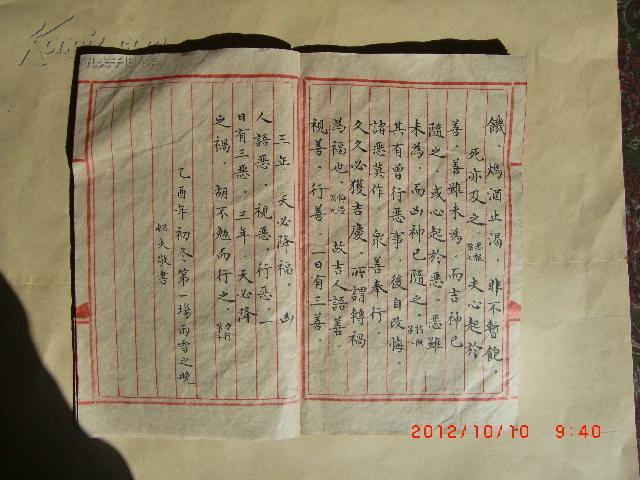 饑．鴆酒止渴．非不暫飽．
死亦及之．夫心起於
善．善雖未為．而吉神已
隨之．或心起於惡．惡雖
未為．而凶神已隨之．
其有曾行惡事．後自改悔．
諸惡莫作．衆善奉行
久久必獲吉慶．所謂轉禍
為福也．故吉人語善．
視善．行善．一日有三善．
三年．天必降福．凶
人語惡．視惡．行惡．一
日有三惡．三年．天必降
之禍．胡不勉而行之．
乙酉年初冬．第一場雨雪之晚
敬書
2012/10/10 9:40
Kongfz.com
孔夫子旧书网